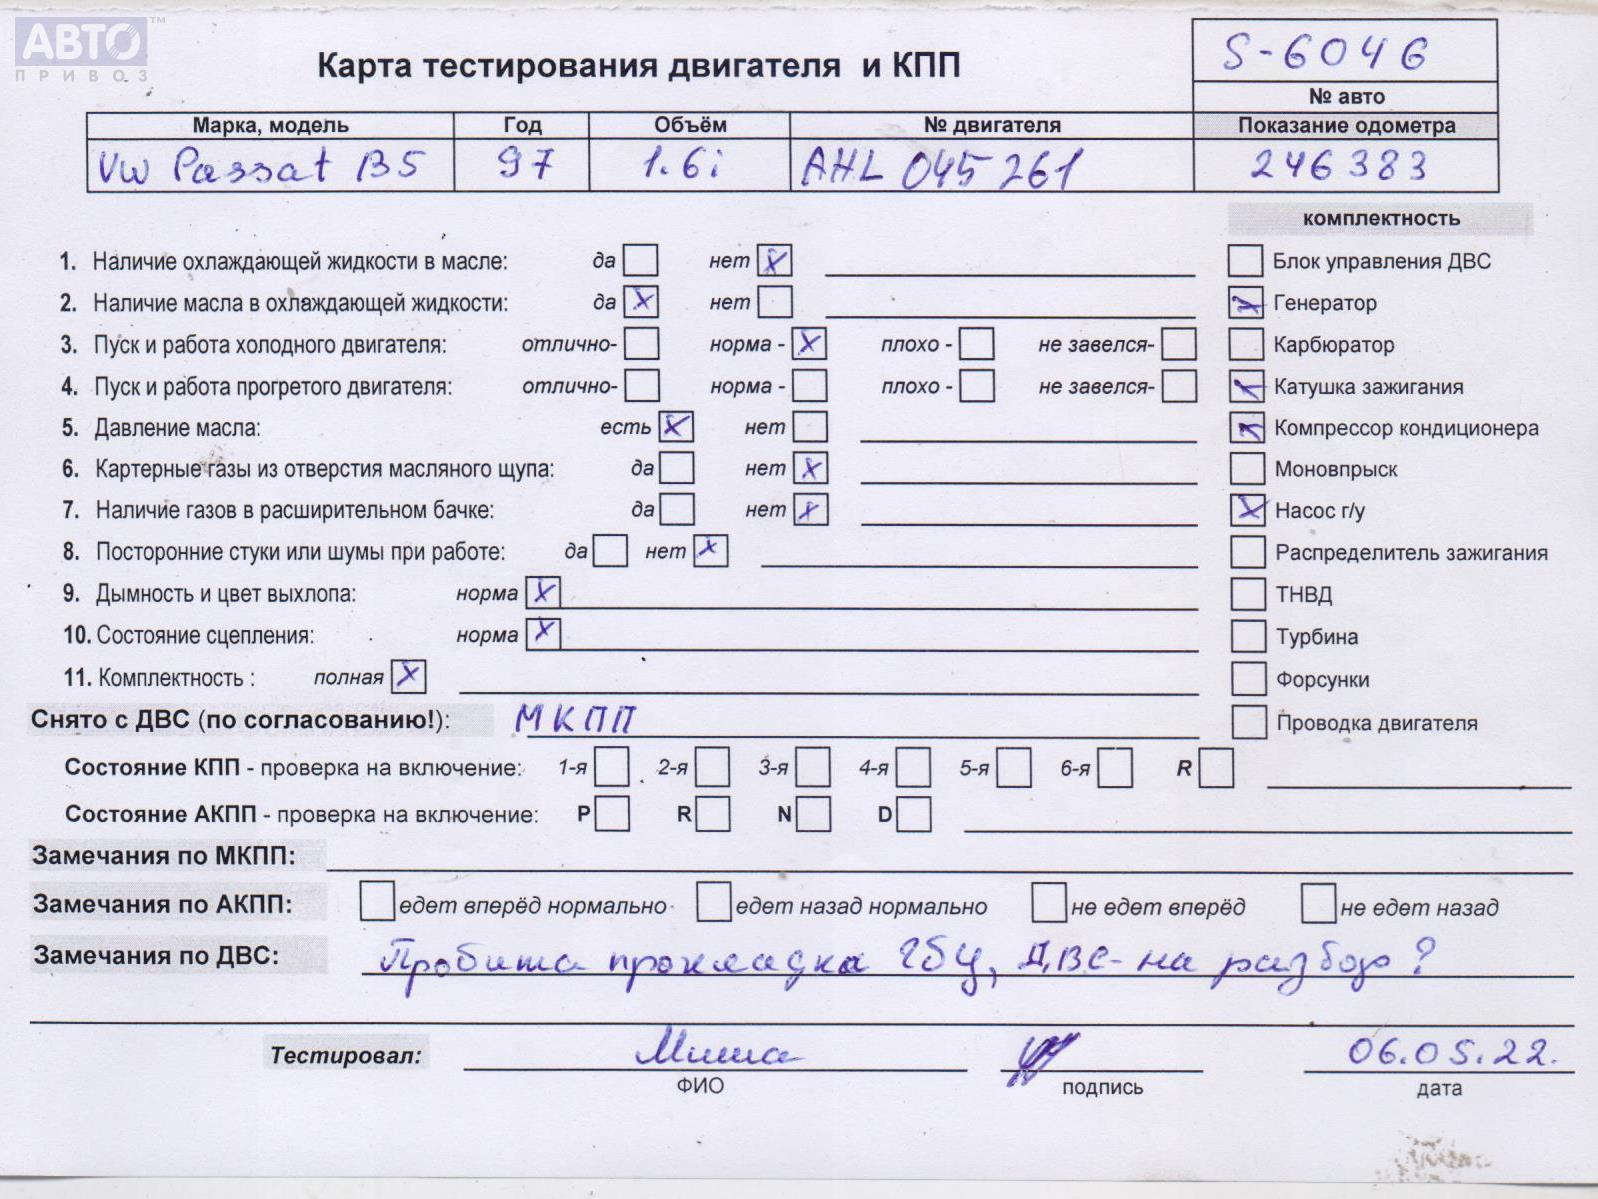 АВТО ™
ПРИВОЗ
Карта тестирования двигателя и КПП
S-6046
№ авто
Марка, модель Год Объём № двигателя Показание одометра
VW Passat B5 97 1.6i AHL 045261 246383
комплектность
1. Наличие охлаждающей жидкости в масле: да нет X Блок управления ДВС
2. Наличие масла в охлаждающей жидкости: да X нет X Генератор
3. Пуск и работа холодного двигателя: отлично- норма - X плохо - не завелся- Карбюратор
4. Пуск и работа прогретого двигателя: отлично- норма - плохо - не завелся- X Катушка зажигания
5. Давление масла: есть X нет X Компрессор кондиционера
6. Картерные газы из отверстия масляного щупа: да нет X Моновпрыск
7. Наличие газов в расширительном бачке: да нет X X Насос г/у
8. Посторонние стуки или шумы при работе: да нет X Распределитель зажигания
9. Дымность и цвет выхлопа: норма X ТНВД
10. Состояние сцепления: норма X Турбина
11. Комплектность : полная X Форсунки
Снято с ДВС (по согласованию!): МКПП Проводка двигателя
Состояние КПП - проверка на включение: 1-я 2-я 3-я 4-я 5-я 6-я R
Состояние АКПП - проверка на включение: P R N D
Замечания по МКПП:
Замечания по АКПП: едет вперёд нормально едет назад нормально не едет вперёд не едет назад
Замечания по ДВС: Пробита прокладка ГБЦ, ДВС - на разбор ?
Тестировал: Миша 06.05.22.
ФИО подпись дата